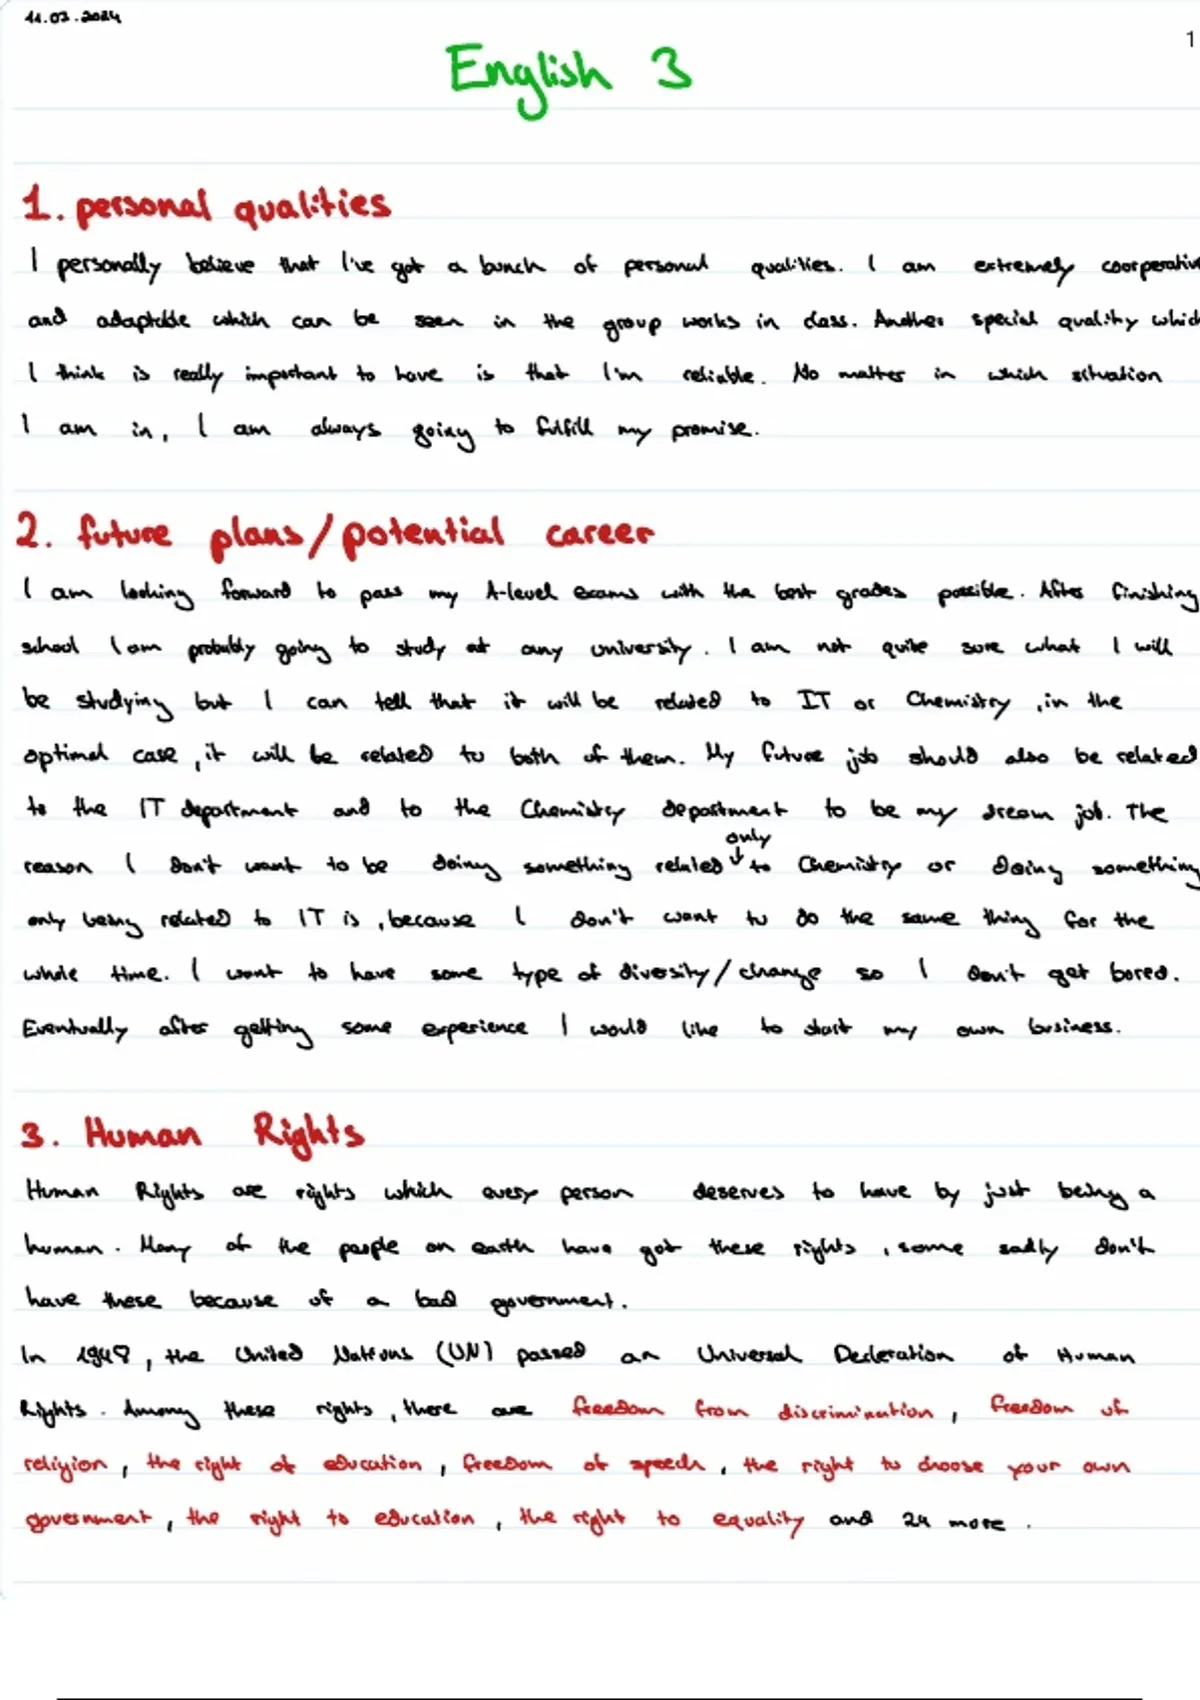 11.03.2024
1
English 3
1. personal qualities
I personally believe that I've got a bunch of personal qualities. I am extremely coorperativ
and adaptable which can be seen in the group works in class. Another special quality whic
I think is really important to have is that I'm reliable. No matter in which situation
I am in, I am always going to fulfill my promise.
2. future plans/potential career
I am looking forward to pass my A-level exams with the best grades possible. After finishing
school I am probably going to study at any university. I am not quite sure what I will
be studying but I can tell that it will be related to IT or Chemistry, in the
optimal case, it will be related to both of them. My future job should also be related
to the IT department and to the Chemistry department to be my dream job. The
only
reason I don't want to be doing something related ↓ to Chemistry or doing something
only being related to IT is, because I don't want to do the same thing for the
whole time. I want to have some type of diversity/change so I don't get bored.
Eventually after getting some experience I would like to start my own business.
3. Human Rights
Human Rights are rights which every person deserves to have by just being a
human. Many of the people on earth have got these rights, some sadly don't
have these because of a bad government.
In 1948, the United Nations (UN) passed an Universal Decleration of Human
Rights. Among these rights, there are freedom from discrimination, freedom of
religion, the right of education, freedom of speech, the right to choose your own
government, the right to education, the right to equality and 24 more.